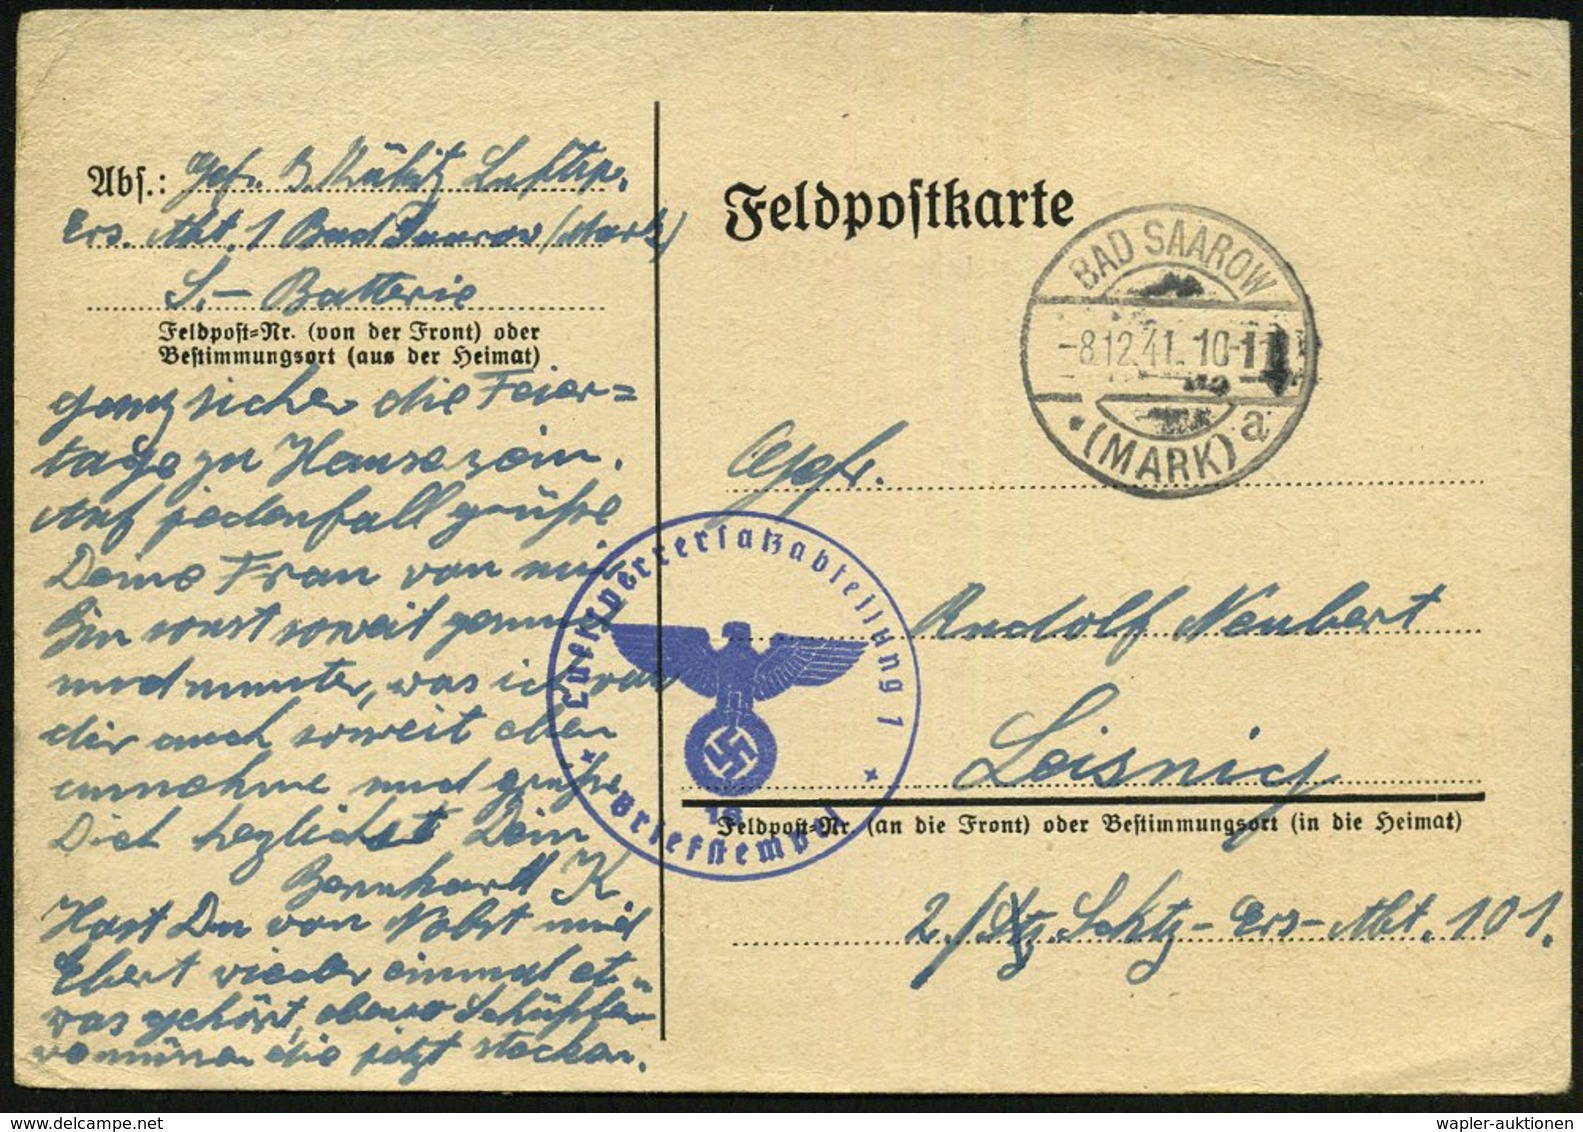 Abs.: Gefr. B. Kübitz Luftsp.
Ers. Abt. 1 Bad Saarow (Mark)
S.- Batterie
Feldpost=Nr. (von der Front) oder
Bestimmungsort (aus der Heimat)
ganz sicher die Feier=
tage zu Hause sein.
Auf jedenfall grüße
Deine Frau von mir
Bin sonst soweit gesund
und munter, was ich von
dir auch soweit eben
annehme und grüße
Dich herzlichst Dein
Bernhardt K
Hast Du von Nobst und
Ebert wieder einmal et-
was gehört, ebenso Schüßler
wo mürsen die jetzt stecken.
Feldpostkarte
BAD SAAROW
-8.12.41. 10-11
(MARK) a
Gefr.
Luftsperrersatzabteilung 1
Briefstempel
Rudolf Neubert
Leisnig
Feldpost=Nr. (an die Front) oder Bestimmungsort (in die Heimat)
2./ Schtz-Ers-Abt. 101.
wapler-auktionen